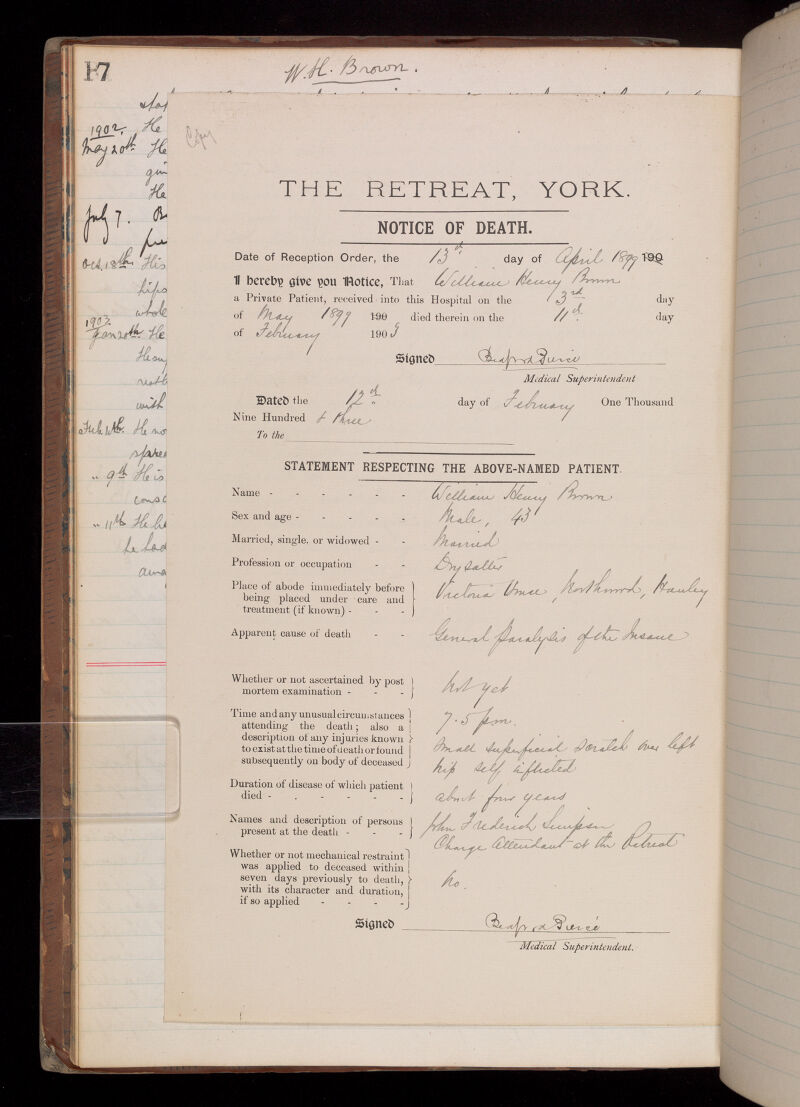 W. H. Brown.
1902. He
May 20th He
He
July 7.
Oct. 18th His
hips
whole
1903.
Jan 20th He
with
Feb 4th. He
" 9th He is
" 11th He
he had
Copy
THE RETREAT, YORK.
NOTICE OF DEATH.
Date of Reception Order, the 13th day of April 1899 190
I hereby give you Notice, That William Henry Brown
a Private Patient, received into this Hospital on the 3rd day
of May 1899 190 died therein on the 11th day
of February 1903
Signed Bedford Pierce
Medical Superintendent
Dated the 12th day of February One Thousand
Nine Hundred & three
To the
STATEMENT RESPECTING THE ABOVE-NAMED PATIENT.
Name - - - - - - William Henry Brown
Sex and age - - - - - Male, 43
Married, single, or widowed - - Married
Profession or occupation - - Drysalter
Place of abode immediately before
being placed under care and
treatment (if known) - - - Victoria House, Northwood, Hanley
Apparent cause of death - - General Paralysis of the Insane
Whether or not ascertained by post
mortem examination - - - Not yet
Time and any unusual circumstances
attending the death; also a
description of any injuries known
to exist at the time of death or found
subsequently on body of deceased
7.5 pm.
Small superficial scratch over left
hip self inflicted
Duration of disease of which patient
died - - - - - - about four years
Names and description of persons
present at the death - - -
John Frederick Simpson
Charge Attendant at the Retreat
Whether or not mechanical restraint
was applied to deceased within
seven days previously to death,
with its character and duration,
if so applied - - - -
No.
Signed Bedford Pierce
Medical Superintendent.